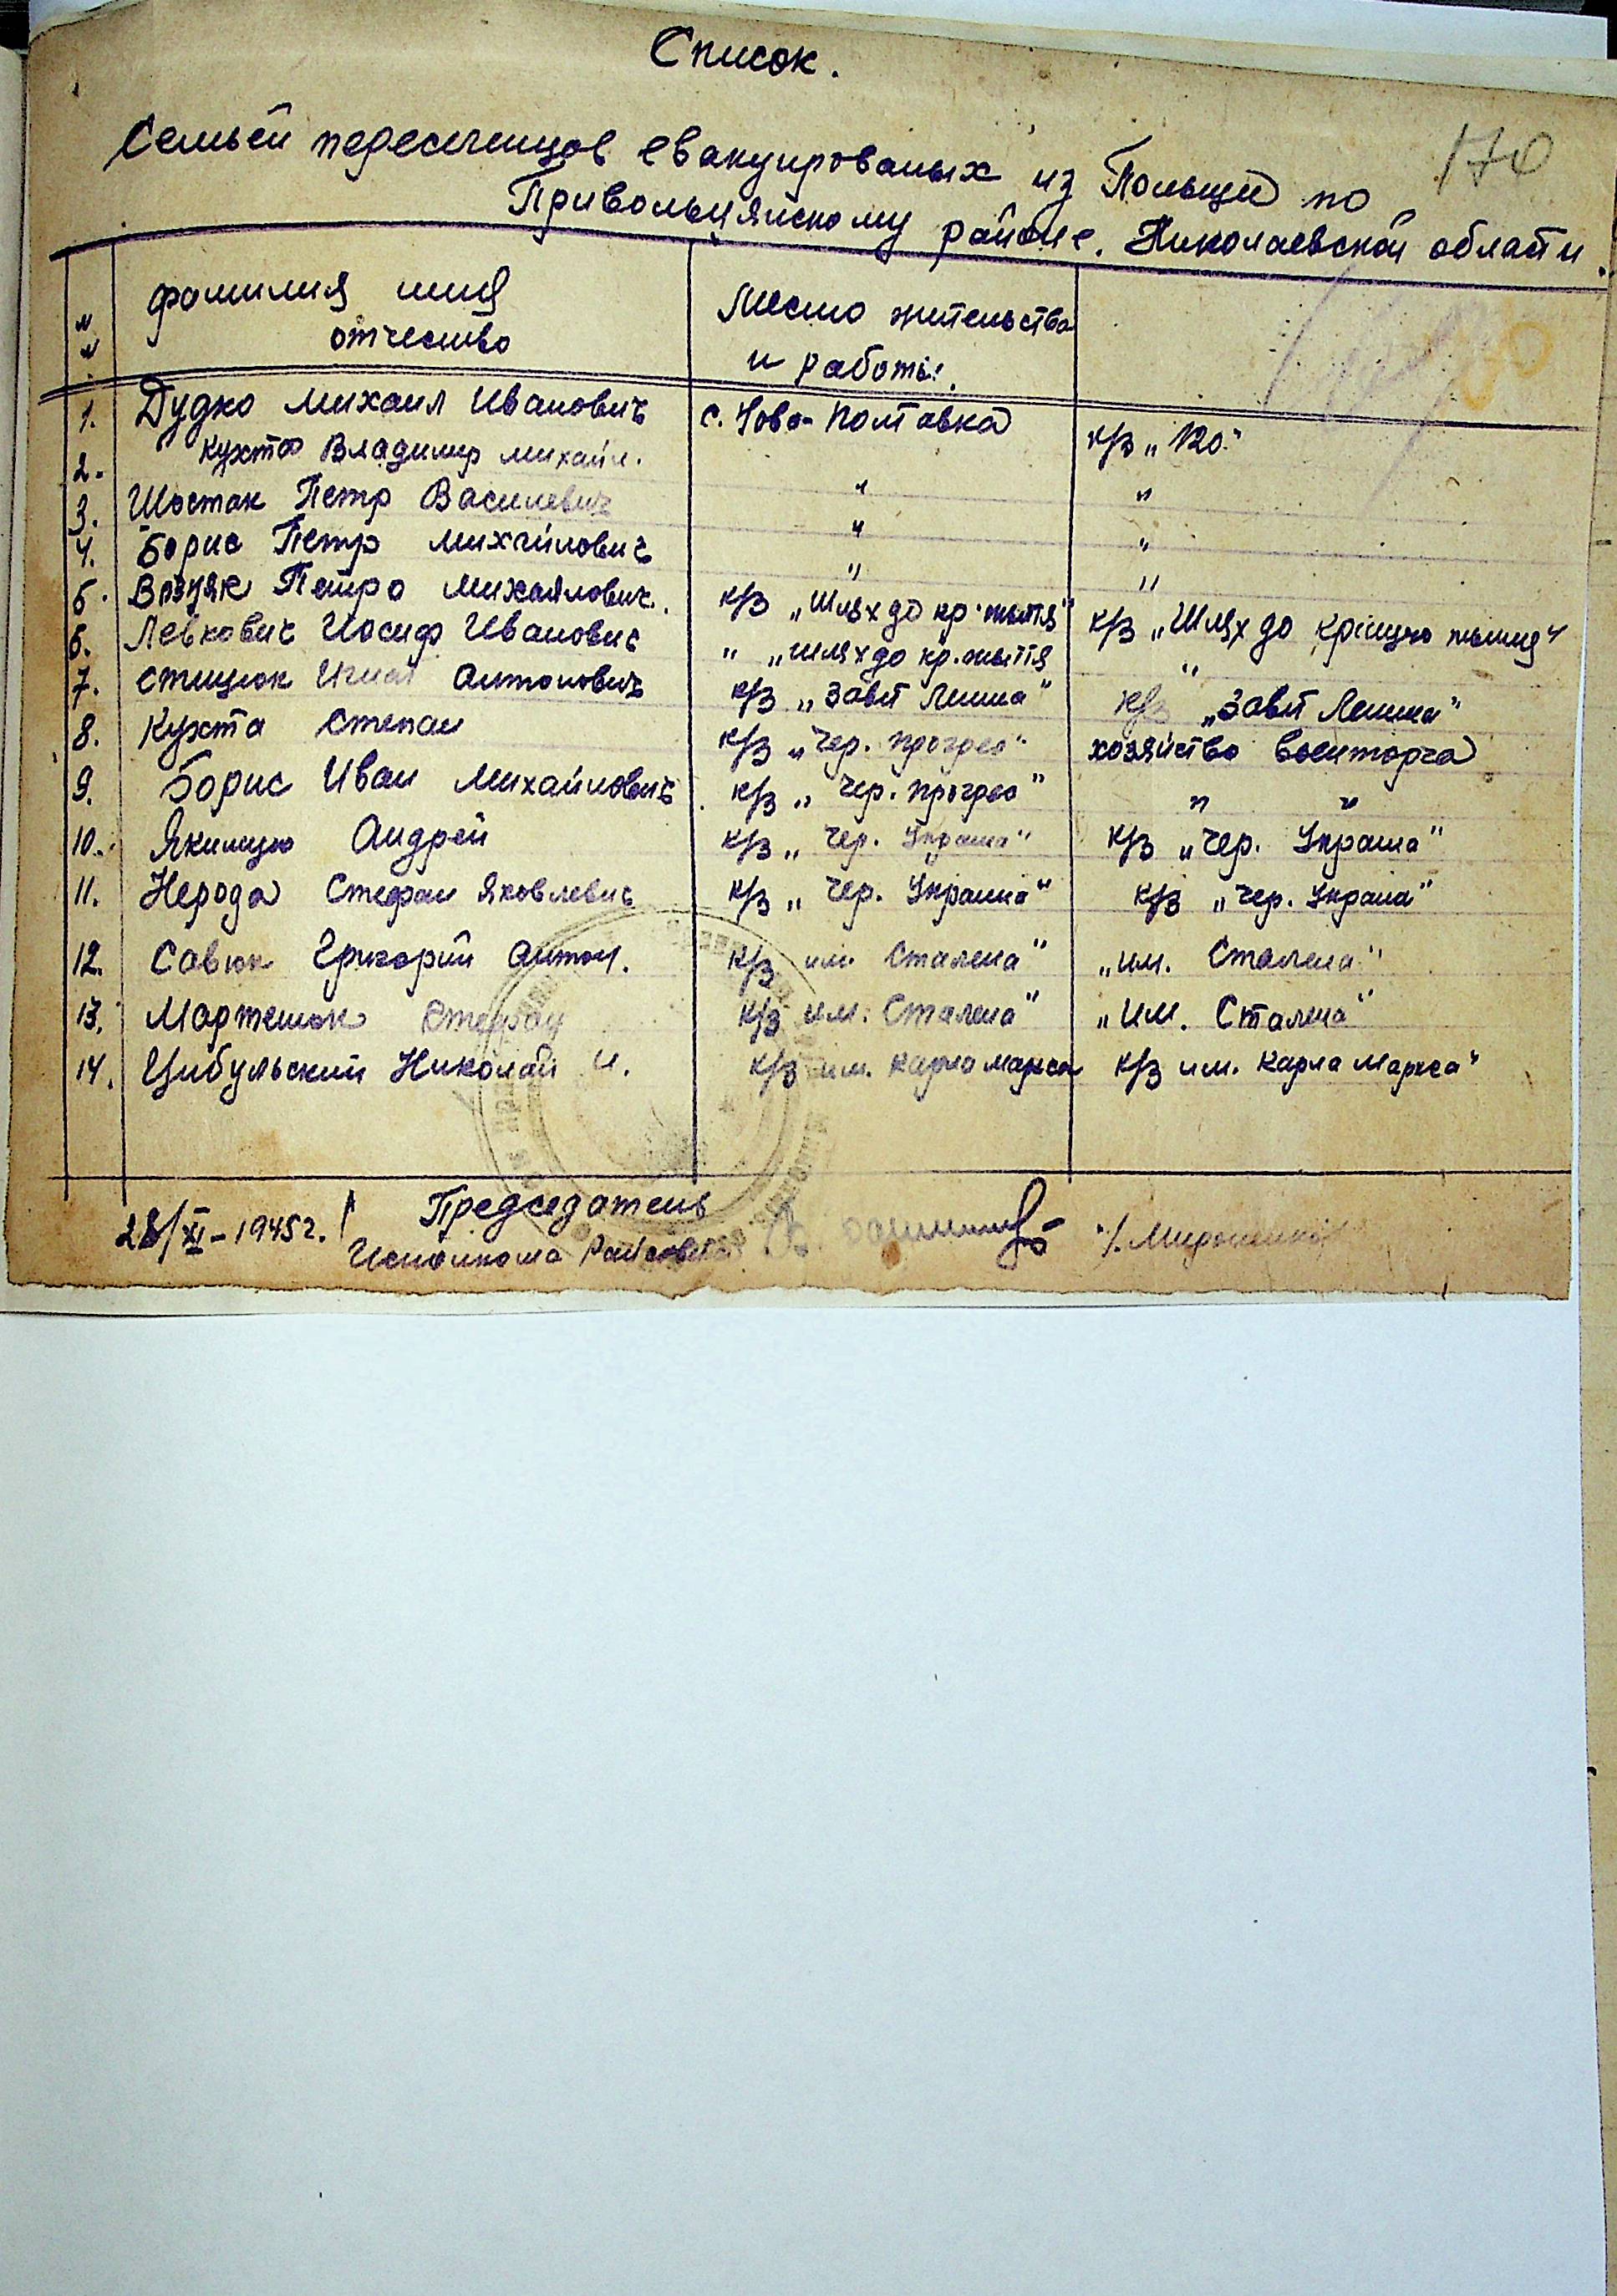 Список.
170
Семьей переселенцов евакуированых из Польщи по
Привольнянскому районе. Николаевской области.
№ № фамилия имя отчество Место жительства и работы.
1. Дудко Михаил Иванович с. Ново-Полтавка к/з „120."
2. Кухта Владимир Михайл. " "
3. Шостак Петр Василевич " "
4. Борис Петр Михайлович " "
5. Возняк Петро Михаялович. к/з „Шлях до кр. життя" к/з „Шлях до кращого життя"
6. Левкович Иосиф Иванович " „шлях до кр. життя "
7. Стицюк Игнат Антонович к/з „Завіт Леніна" к/з „Завіт Леніна"
8. Кухта Степан к/з „Чер. прогрес" хозяйство военторга
9. Борис Иван Михайлович к/з „Чер. прогрес" " "
10. Якимцю Андрей к/з „Чер. Украіна" к/з „Чер. Украіна"
11. Нерода Стефан Яковлевич к/з „Чер. Украіна" к/з „Чер. Украіна"
12. Савюк Григорий Антон. к/з им. Сталена" „им. Сталена"
13. Мартенюк Стефан к/з им. Сталена" „им. Сталена"
14. Цибульский Николай И. к/з им. Карла Маркса к/з им. Карла Маркса"
28/XI-1945г. Председатель
Исполкома Райсовета /.Мироненко/